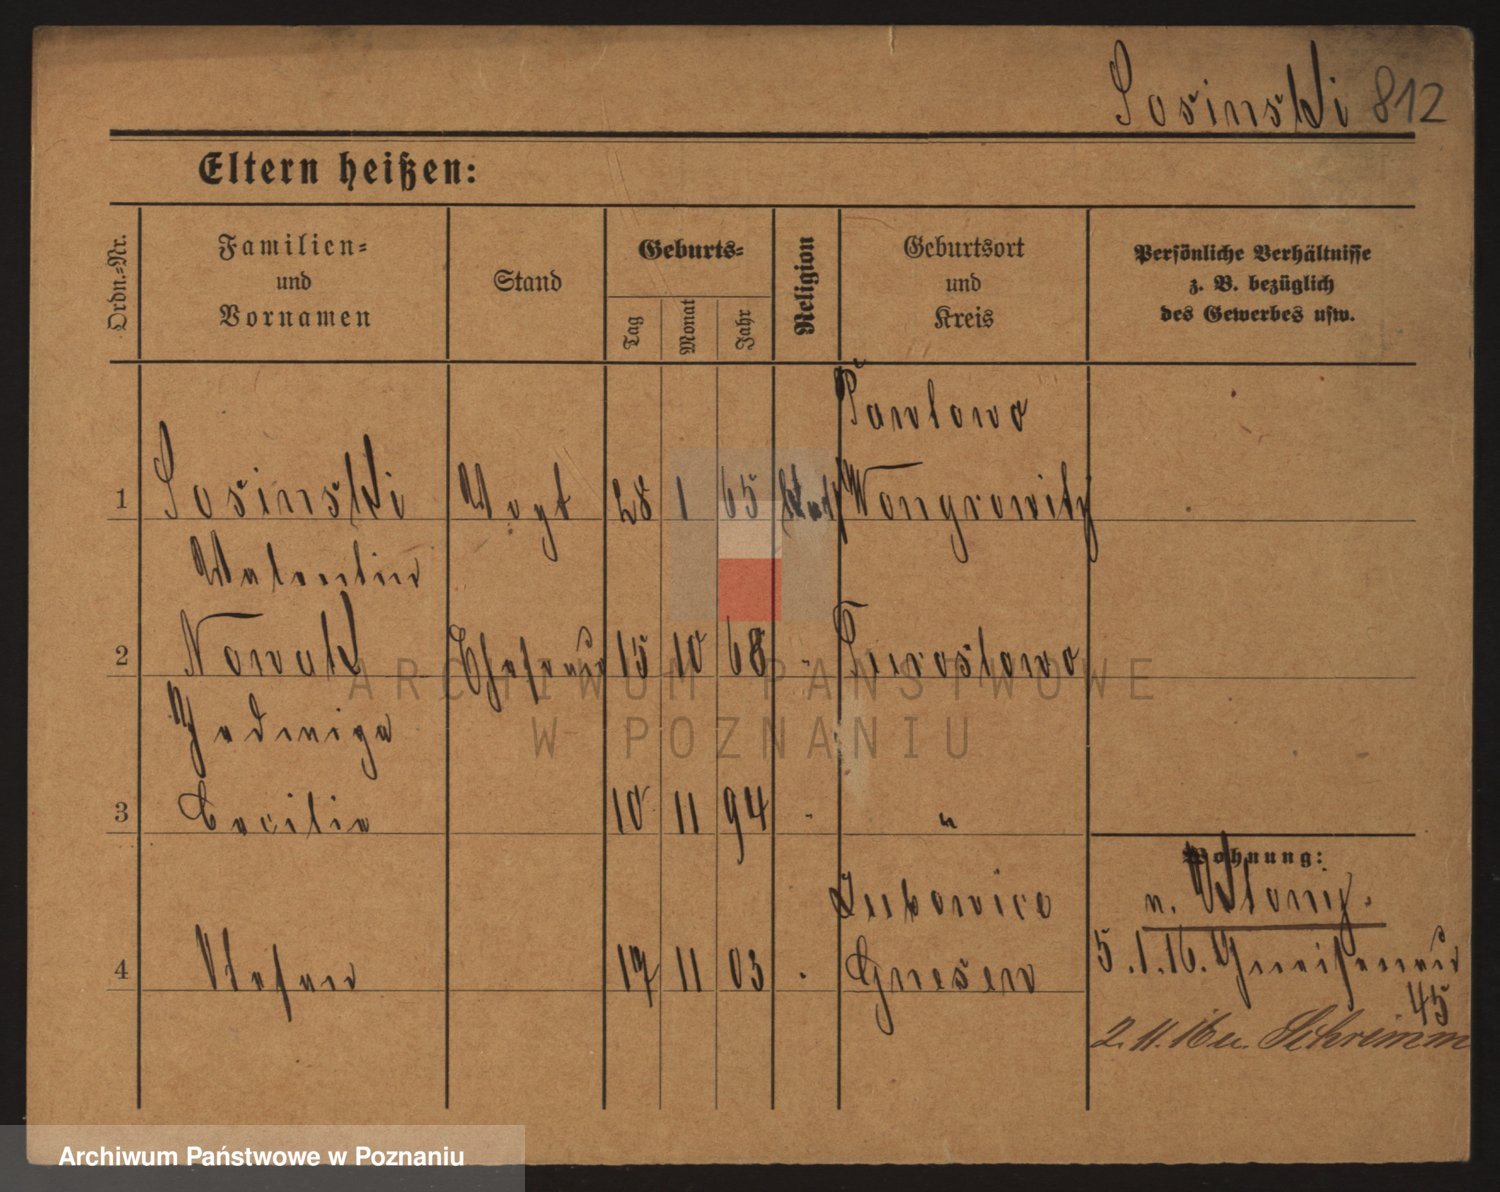 Sosinski 812
Eltern heißen:
Ordn.=Nr.
Familien=
und
Vornamen
Stand
Geburts=
Tag
Monat
Jahr
Religion
Geburtsort
und
Kreis
Persönliche Verhältnisse
z. B. bezüglich
des Gewerbes usw.
Pawlowo
1 Sosinski Vogt 28 1 65 kath Wongrowitz
Valentin
2 Nowak Ehefrau 15 10 68 - Turostowo
Jadwiga
3 Cecilie 10 11 94 - "
Wohnung:
Lubowice n.
4 Stefan 17 11 03 . Gnesen 5.1.16. Gneisenau
45
2.11.16 u. Schrimm
ARCHIWUM PAŃSTWOWE
W POZNANIU
Archiwum Państwowe w Poznaniu